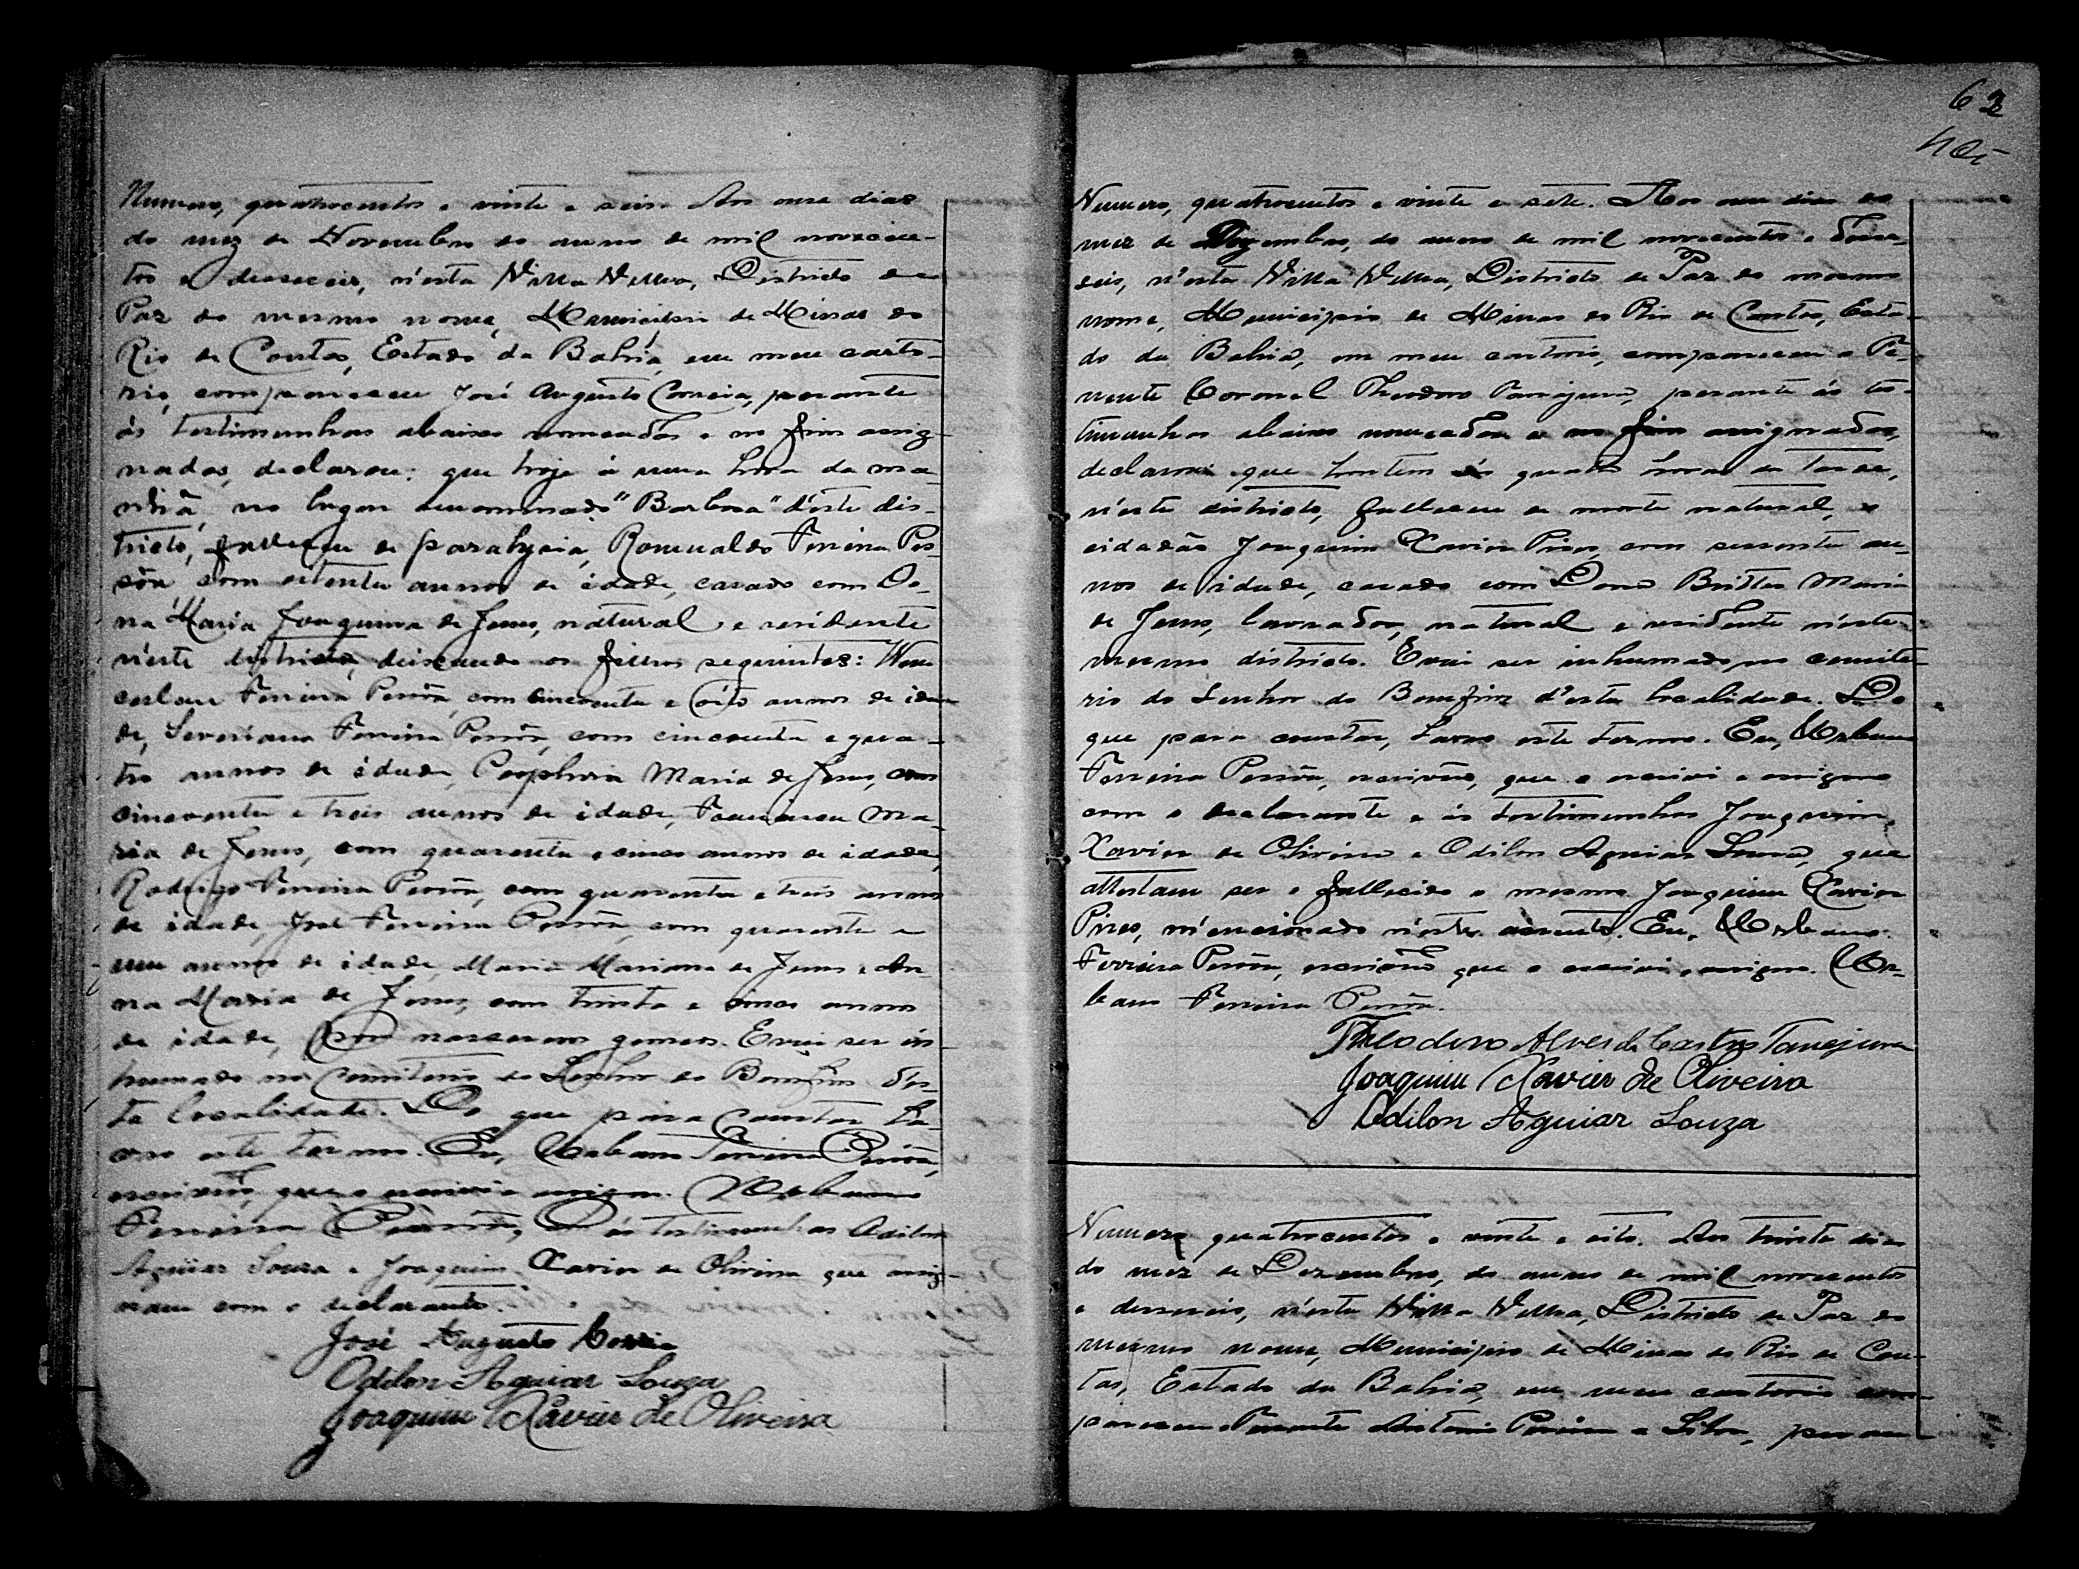 Numero, quatrocentos e vinte e seis. Aos onze dias
do mez de Novembro do anno de mil novecen-
tos e deseseis, n'esta Villa Velha, Districto de
Paz do mesmo nome, Municipio de Minas do
Rio de Contas, Estado da Bahia, em meu carto-
rio, compareceu José Augusto Correia, perante
ás testimunhas abaixo nomeadas e no fim assig-
nadas, declarou: que hoje á uma hora da ma-
nhã, no lugar denominado "Barbosa" d'este dis-
tricto, falleceu de paralysia, Romualdo Ferreira Pes-
sôa, com setenta annos de idade, casado com Do-
na Maria Joaquina de Jesus, natural e residente
n'este districto, deixando os filhos seguintes:
Ferreira Pessôa, com cincoenta e oito annos de ida-
de, Severiano Ferreira Pessôa, com cincoenta e qua-
tro annos de idade, Maria de Jesus, com
cincoenta e treis annos de idade, Ma-
ria de Jesus, com quarenta e cinco annos de idade,
Rodrigo Ferreira Pessôa, com quarenta e treis annos
de idade, José Ferreira Pessôa, com quarenta e
um annos de idade, Maria Mariana de Jesus e An-
na Maria de Jesus, com trinta e cinco annos
de idade, por nascerem gemeos. Evai ser in-
humado no Cemiterio do Senhor do Bomfim d'es-
ta localidade. Do que para constar la-
vro este termo. Eu, Urbano Ferreira Pessôa,
escrivão, que o escrivi e assigno. Urbano
Ferreira Pessôa, ás testimunhas Odilon
Aguiar Souza e Joaquim Xavier de Oliveira que assig-
nam com o declarante.
José Augusto Correia
Odilon Aguiar Souza
Joaquim Xavier de Oliveira
62
Numero, quatrocentos e vinte e sete. Aos onze dias do
mez de Dezembro, do anno de mil novecentos e dese-
seis, n'esta Villa Velha, Districto de Paz do mesmo
nome, Municipio de Minas do Rio de Contas, Esta-
do da Bahia, em meu cartorio, compareceu o Te-
nente Coronel Theodoro Tanajura, perante ás tes-
timunhas abaixo nomeadas e no fim assignadas,
declarou que hontem ás quatro horas da tarde,
n'este districto, falleceu de morte natural, o
cidadão Joaquim Xavier Pires, com sessenta an-
nos de idade, casado com Dona Brittes Maria
de Jesus, lavrador, natural e residente n'este
mesmo districto. Evai ser inhumado no cemite-
rio do Senhor do Bomfim d'esta localidade. Do
que para constar, lavro este termo. Eu, Urbano
Ferreira Pessôa, escrivão, que o escrivi e assigno
com o declarante e ás testimunhas Joaquim
Xavier de Oliveira e Odilon Aguiar Souza, que
attestam ser o fallecido o mesmo Joaquim Xavier
Pires, mencionado n'este assento. Eu, Urbano
Ferreira Pessôa, escrivão que o escrivi e assigno. Ur-
bano Ferreira Pessôa.
Theodoro Alves de Castro Tanajura
Joaquim Xavier de Oliveira
Odilon Aguiar Souza
Numero quatrocentos e vinte e oito. Aos trinta dias
do mez de Dezembro, do anno de mil novecentos
e deseseis, n'esta Villa Velha, Districto de Paz do
mesmo nome, Municipio de Minas do Rio de Con-
tas, Estado da Bahia, em meu cartorio com-
pareceu Tenente Antonio Pereira e Silva, peran